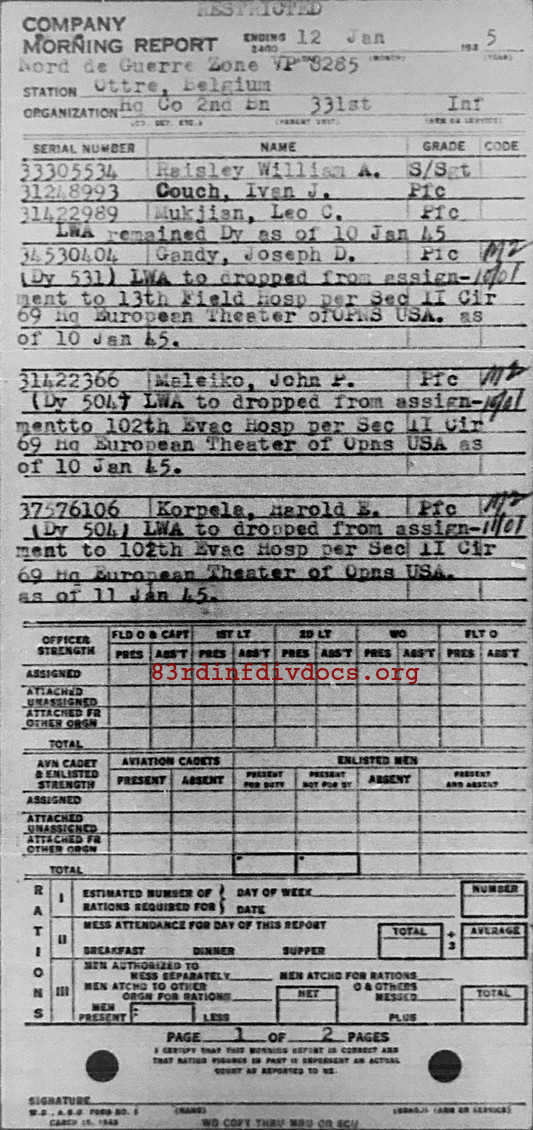 RESTRICTED
COMPANY
MORNING REPORT ENDING 2400 12 Jan 5
Nord de Guerre Zone VP 8285 (MONTH) (YEAR)
STATION Ottre, Belgium
ORGANIZATION Hq Co 2nd Bn 331st Inf
(CO. DET. ETC.) (PARENT UNIT) (ARM OR SERVICE)
SERIAL NUMBER NAME GRADE CODE
33305534 Raisley William A. S/Sgt
31248993 Couch, Ivan J. Pfc
31422989 Mukjian, Leo C. Pfc
LWA remained Dy as of 10 Jan 45
34530404 Gandy, Joseph D. Pfc M2
(Dy 531) LWA to dropped from assign-
ment to 13th Field Hosp per Sec II Cir
69 Hq European Theater ofOPNS USA. as
of 10 Jan 45.
31422366 Meleiko, John P. Pfc M2
(Dy 504) LWA to dropped from assign-
mentto 102th Evac Hosp per Sec II Cir
69 Hq European Theater of Opns USA as
of 10 Jan 45.
37576106 Korpela, Harold E. Pfc M2
(Dy 504) LWA to dropped from assign-
ment to 102th Evac Hosp per Sec II Cir
69 Hq European Theater of Opns USA.
as of 11 Jan 45.
OFFICER STRENGTH FLD O & CAPT 1ST LT 2D LT WO FLT O
PRES ABS'T PRES ABS'T PRES ABS'T PRES ABS'T PRES ABS'T
83rdinfdivdocs.org
ASSIGNED
ATTACHED UNASSIGNED
ATTACHED FR OTHER ORGN
TOTAL
AVN CADET & ENLISTED STRENGTH AVIATION CADETS ENLISTED MEN
PRESENT ABSENT PRESENT FOR DUTY PRESENT NOT FOR DY ABSENT PRESENT AND ABSENT
ASSIGNED
ATTACHED UNASSIGNED
ATTACHED FR OTHER ORGN
TOTAL
RATIONS
I ESTIMATED NUMBER OF RATIONS REQUIRED FOR DAY OF WEEK DATE NUMBER
II MESS ATTENDANCE FOR DAY OF THIS REPORT TOTAL ÷ 3 AVERAGE
BREAKFAST DINNER SUPPER
III MEN AUTHORIZED TO MESS SEPARATELY MEN ATCHD FOR RATIONS
MEN ATCHD TO OTHER ORGN FOR RATIONS NET O & OTHERS MESSED TOTAL
MEN PRESENT LESS PLUS
PAGE 1 OF 2 PAGES
I CERTIFY THAT THIS MORNING REPORT IS CORRECT AND
THAT RATION FIGURES IN PART III REPRESENT AN ACTUAL
COUNT AS REPORTED TO ME.
SIGNATURE
W.D., A.G.O. FORM NO. 1 (NAME) (GRADE) (ARM OR SERVICE)
MARCH 15, 1943